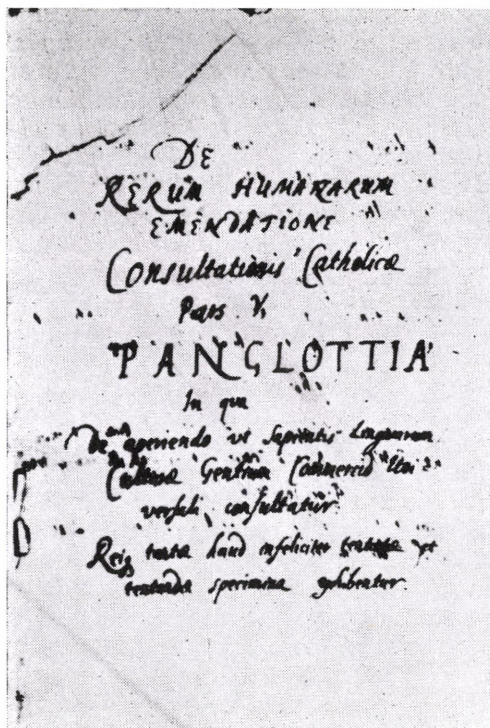 DE
RERUM HUMANARUM
EMENDATIONE
Consultationis Catholicæ
Pars V,
PANGLOTTIA
In qua
De aperiendo vi sapientis Linguarum
Culturæ Gentium Commercio Uni-
versali, consultatur.
Reiq tantæ haud infeliciter tentatæ et
tentandæ specimina exhibentur.